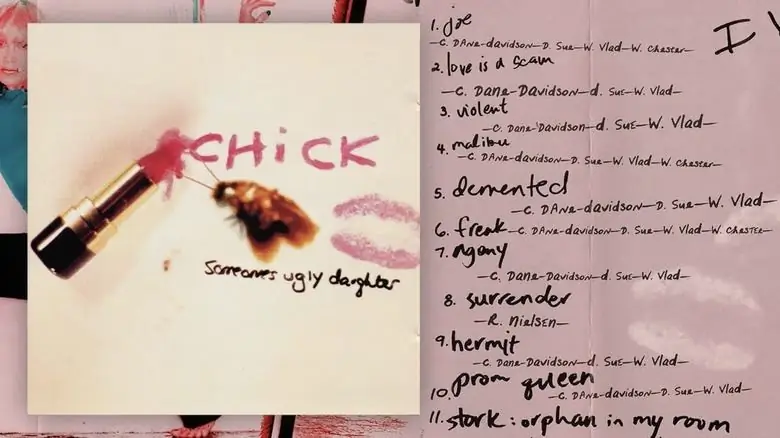 CHICK
Someone's ugly daughter
1. joe
—C. DAne-davidson—D. Sue—W. Vlad—W. Chester—
2. love is a scam
—C. Dane-Davidson—d. SuE—W. Vlad—
3. violent
—C. Dane-Davidson—d. SuE—W. Vlad—
4. malibu
—C. DAne-davidson—D. Sue—W. Vlad—W. Chester—
5. demented
—C. DAne-davidson—D. Sue—W. Vlad—
6. freak—C. DAne-davidson—D. Sue—W. Vlad—W. Chester—
7. agony
—C. Dane-Davidson—d. SuE—W. Vlad—
8. surrender
—R. Nielsen—
9. hermit
—C. Dane-Davidson—d. SuE—W. Vlad—
10. prom queen
—C. DAne-davidson—D. Sue—W. Vlad—
11. stork: orphan in my room
I